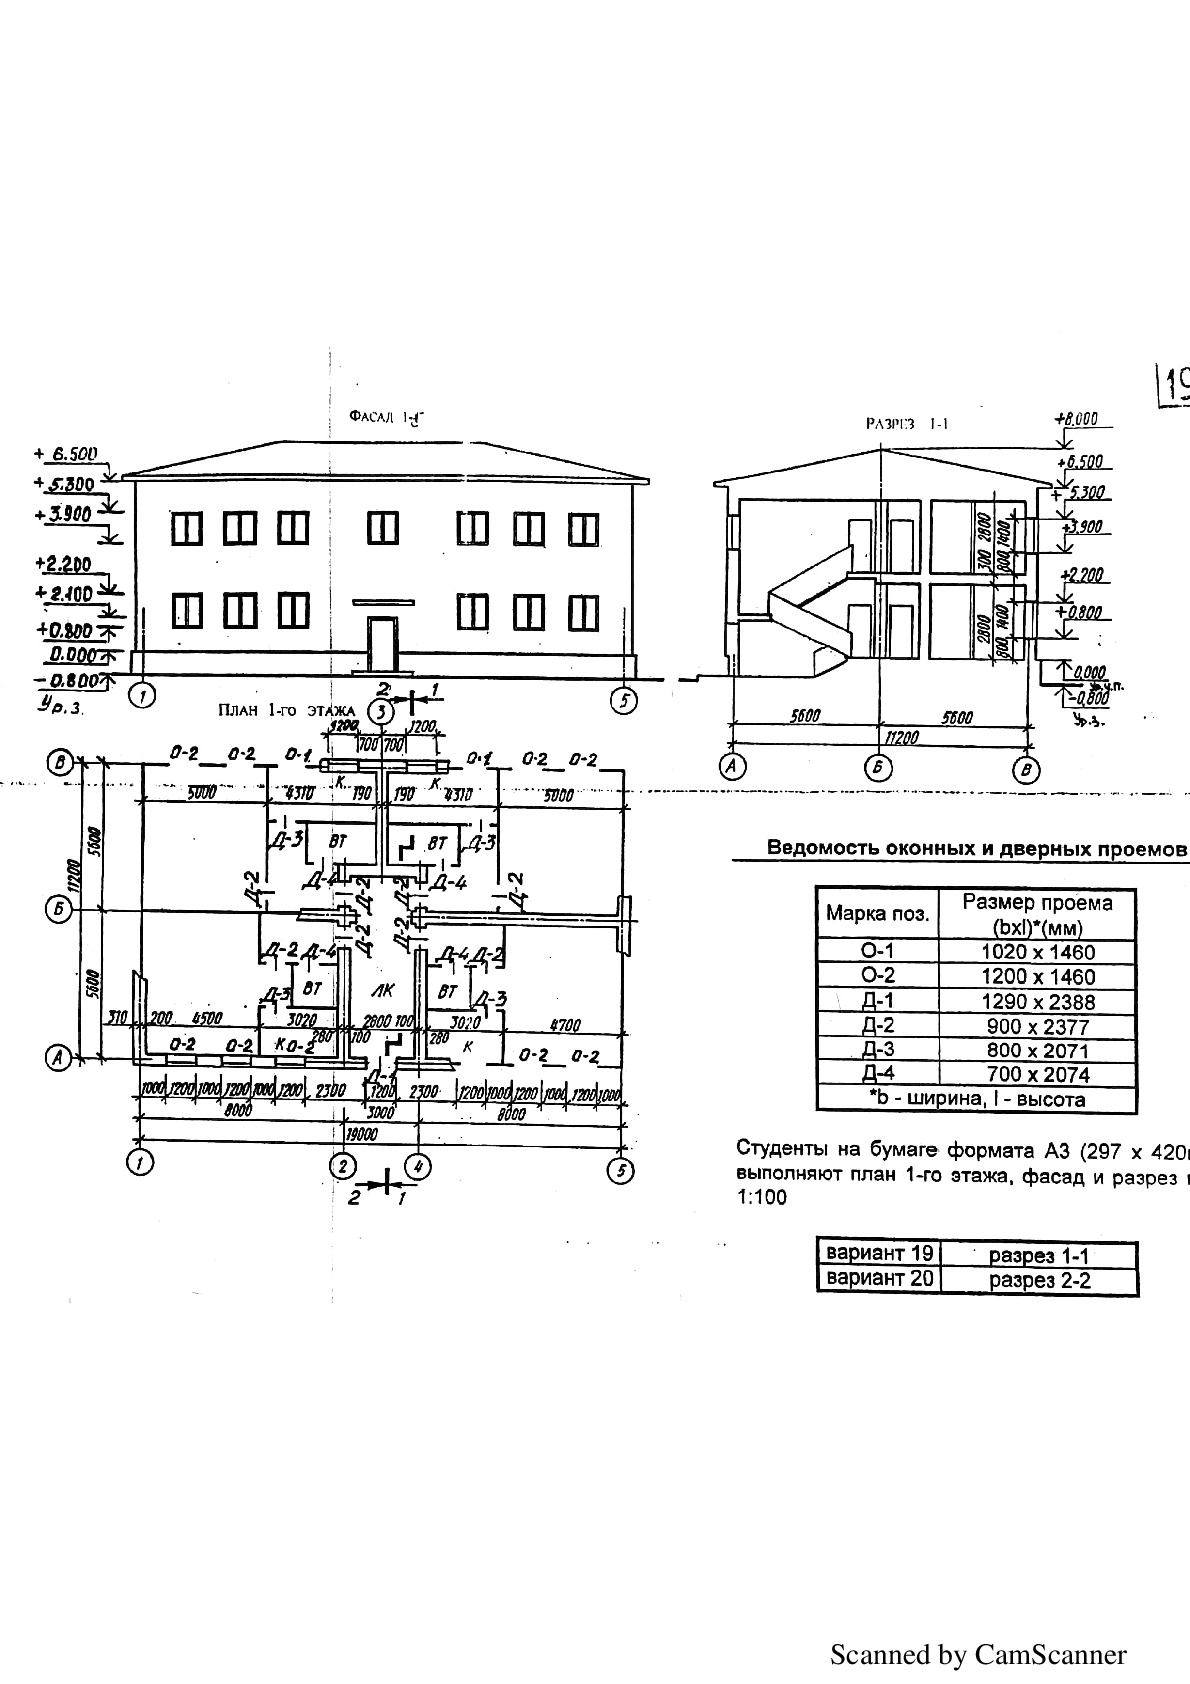 19
ФАСАД 1-5
+ 6.500
+ 5.300
+ 3.900
+2.200
+ 2.100
+0.800
0.000
- 0.800
Ур.З.
1
5
РАЗРЕЗ 1-1
+8.000
+6.500
+ 5.300
+3.900
+2.200
+0.800
0,000
Ур.ч.п.
-0,800
Ур.з.
2800
1400
300
800
2800
1400
800
5600
5600
11200
А
Б
В
2 1
ПЛАН 1-ГО ЭТАЖА
3
1200 1200
700 700
В
О-2 О-2 О-1 О-1 О-2 О-2
К К
5000 4310 190 190 4310 5000
Д-3 ВТ ВТ Д-3
Д-4 Д-4
Д-2 Д-2 Д-2 Д-2
5600
11200
Б
Д-2 Д-2
Д-2 Д-4 Д-4 Д-2
5600
Д-3 ВТ ЛК ВТ Д-3
310 200 4500 3020 2600 100 3020 4700
280 100 280
О-2 О-2 К О-2 К О-2 О-2
А
Д-1
1000 1200 1000 1200 1000 1200 2300 1200 2300 1200 1000 1200 1000 1200 1000
8000 3000 8000
19000
1 2 4 5
2 1
Ведомость оконных и дверных проемов
Марка поз. Размер проема (bxl)*(мм)
О-1 1020 х 1460
О-2 1200 х 1460
Д-1 1290 х 2388
Д-2 900 х 2377
Д-3 800 х 2071
Д-4 700 х 2074
*b - ширина, l - высота
Студенты на бумаге формата А3 (297 х 420
выполняют план 1-го этажа, фасад и разрез
1:100
вариант 19 разрез 1-1
вариант 20 разрез 2-2
Scanned by CamScanner